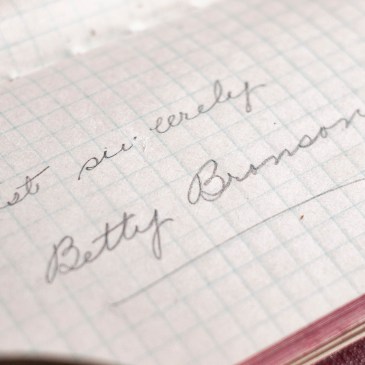 sincerely
Betty Bronson